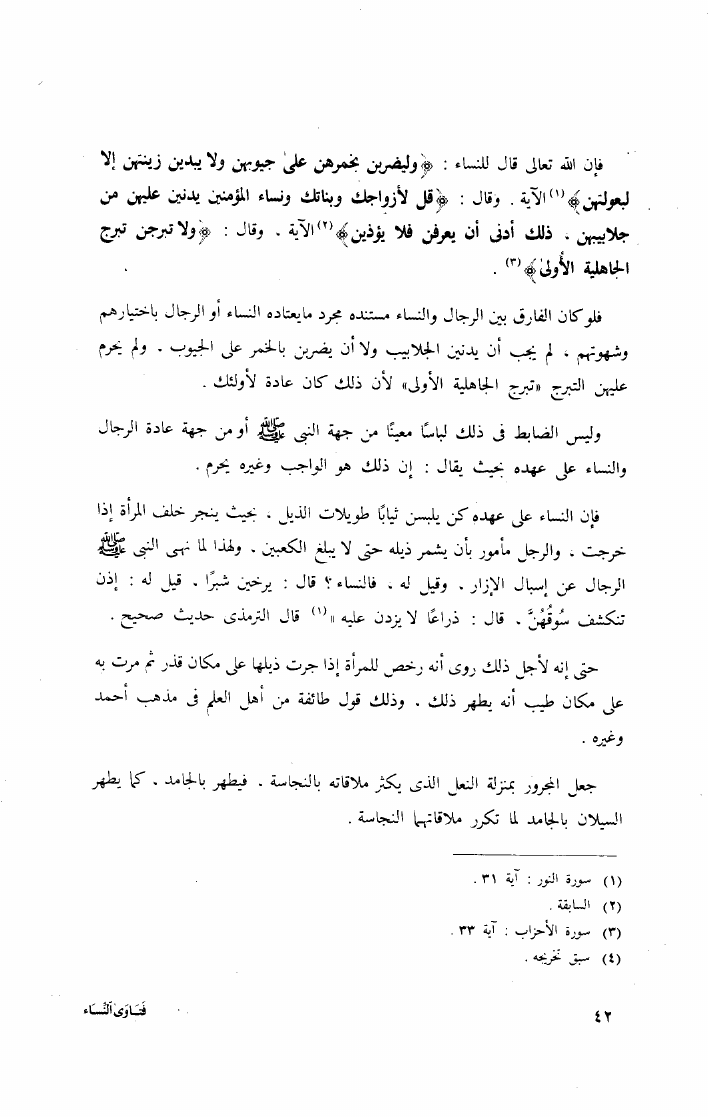 فإن الله تعالى قال للنساء : ﴿وليضربن بخمرهن على جيوبهن ولا يبدين زينتهن إلا
لبعولتهن﴾(١) الآية . وقال : ﴿قل لأزواجك وبناتك ونساء المؤمنين يدنين عليهن من
جلابيبهن . ذلك أدنى أن يعرفن فلا يؤذين﴾(٢) الآية . وقال : ﴿ولا تبرجن تبرج
الجاهلية الأولى﴾(٣) .
فلو كان الفارق بين الرجال والنساء مستنده مجرد مايعتاده النساء أو الرجال باختيارهم
وشهوتهم ، لم يجب أن يدنين الجلابيب ولا أن يضربن بالخمر على الجيوب . ولم يحرم
عليهن التبرج «تبرج الجاهلية الأولى» لأن ذلك كان عادة لأولئك .
وليس الضابط فى ذلك لباسًا معينًا من جهة النبى ﷺ أو من جهة عادة الرجال
والنساء على عهده بحيث يقال : إن ذلك هو الواجب وغيره يحرم .
فإن النساء على عهده كن يلبسن ثيابًا طويلات الذيل ، بحيث ينجر خلف المرأة إذا
خرجت ، والرجل مأمور بأن يشمر ذيله حتى لا يبلغ الكعبين . ولهذا لما نهى النبى ﷺ
الرجال عن إسبال الإزار . وقيل له . فالنساء ؟ قال : يرخين شبرًا . قيل له : إذن
تنكشف سُوقُهُنَّ . قال : ذراعًا لا يزدن عليه »(١) قال الترمذى حديث صحيح .
حتى إنه لأجل ذلك روى أنه رخص للمرأة إذا جرت ذيلها على مكان قذر ثم مرت به
على مكان طيب أنه يطهر ذلك . وذلك قول طائفة من أهل العلم فى مذهب أحمد
وغيره .
جعل المجرور بمنزلة النعل الذى يكثر ملاقاته بالنجاسة . فيطهر بالجامد . كما يطهر
السيلان بالجامد لما تكرر ملاقاتهما النجاسة .
(١) سورة النور : آية ٣١ .
(٢) السابقة .
(٣) سورة الأحزاب : آية ٣٣ .
(٤) سبق تخريجه .
٤٢
فَتَاوَى النِّسَاء